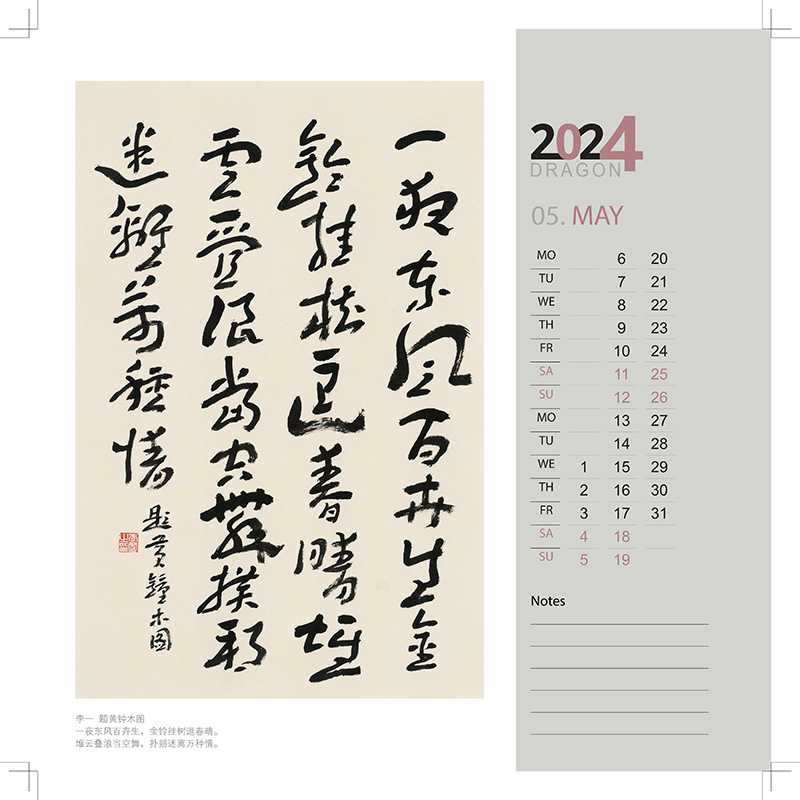 一夜東風百卉生金
鈴挂樹逗春晴堆
雲疊浪當空舞撲朔
迷離萬種情
題黄鐘木圖
李一 题黄钟木图
一夜东风百卉生，金铃挂树逗春晴。
堆云叠浪当空舞，扑朔迷离万种情。
2024
DRAGON
05. MAY
MO 6 20
TU 7 21
WE 8 22
TH 9 23
FR 10 24
SA 11 25
SU 12 26
MO 13 27
TU 14 28
WE 1 15 29
TH 2 16 30
FR 3 17 31
SA 4 18
SU 5 19
Notes